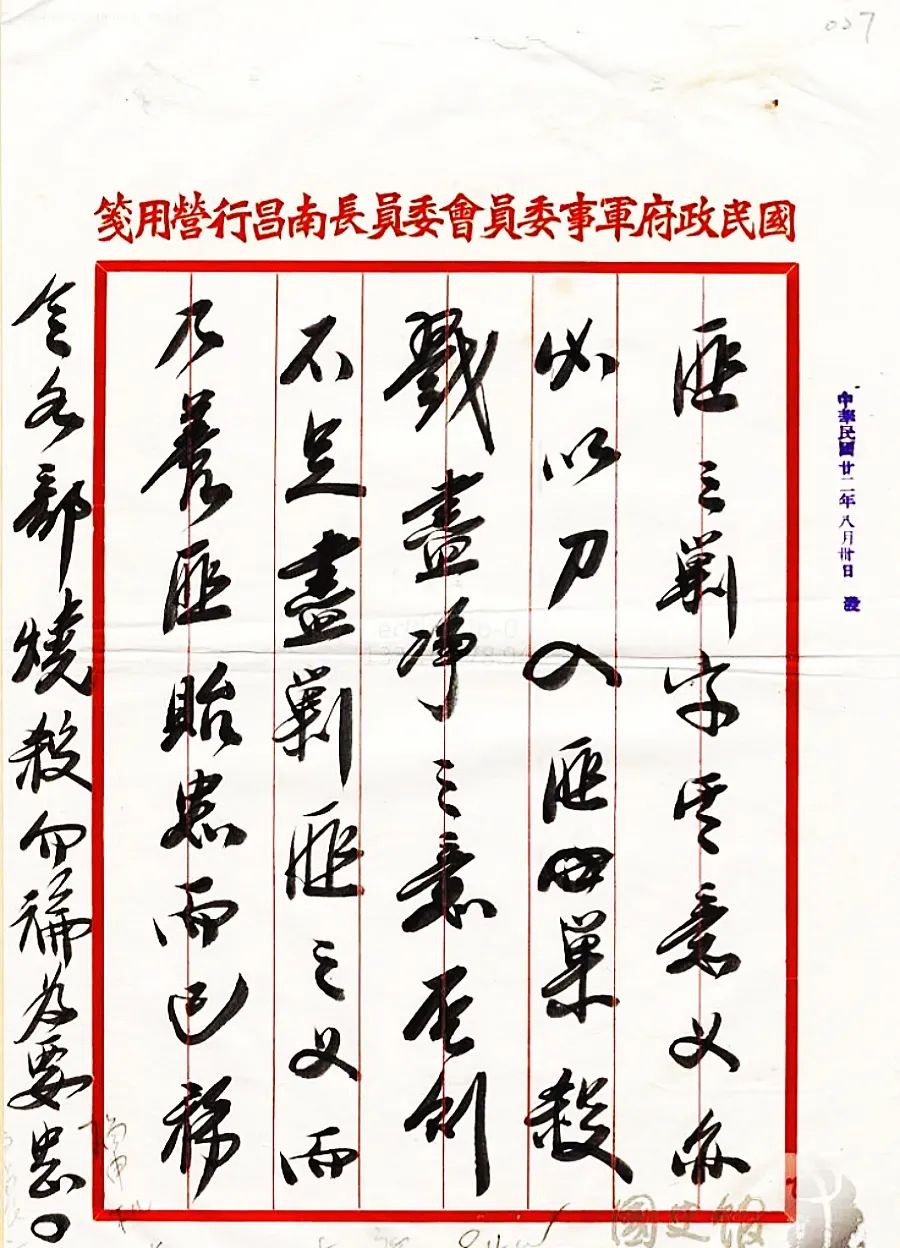 國民政府軍事委員會委員長南昌行營用箋
中華民國廿二年八月卅日 發
匪之剿字其意义亦
必以刀入匪巢殺
戮盡净之意否則
不足盡剿匪之义而
乃養匪貽患而已務
令各部燒殺勿論為要
國史館